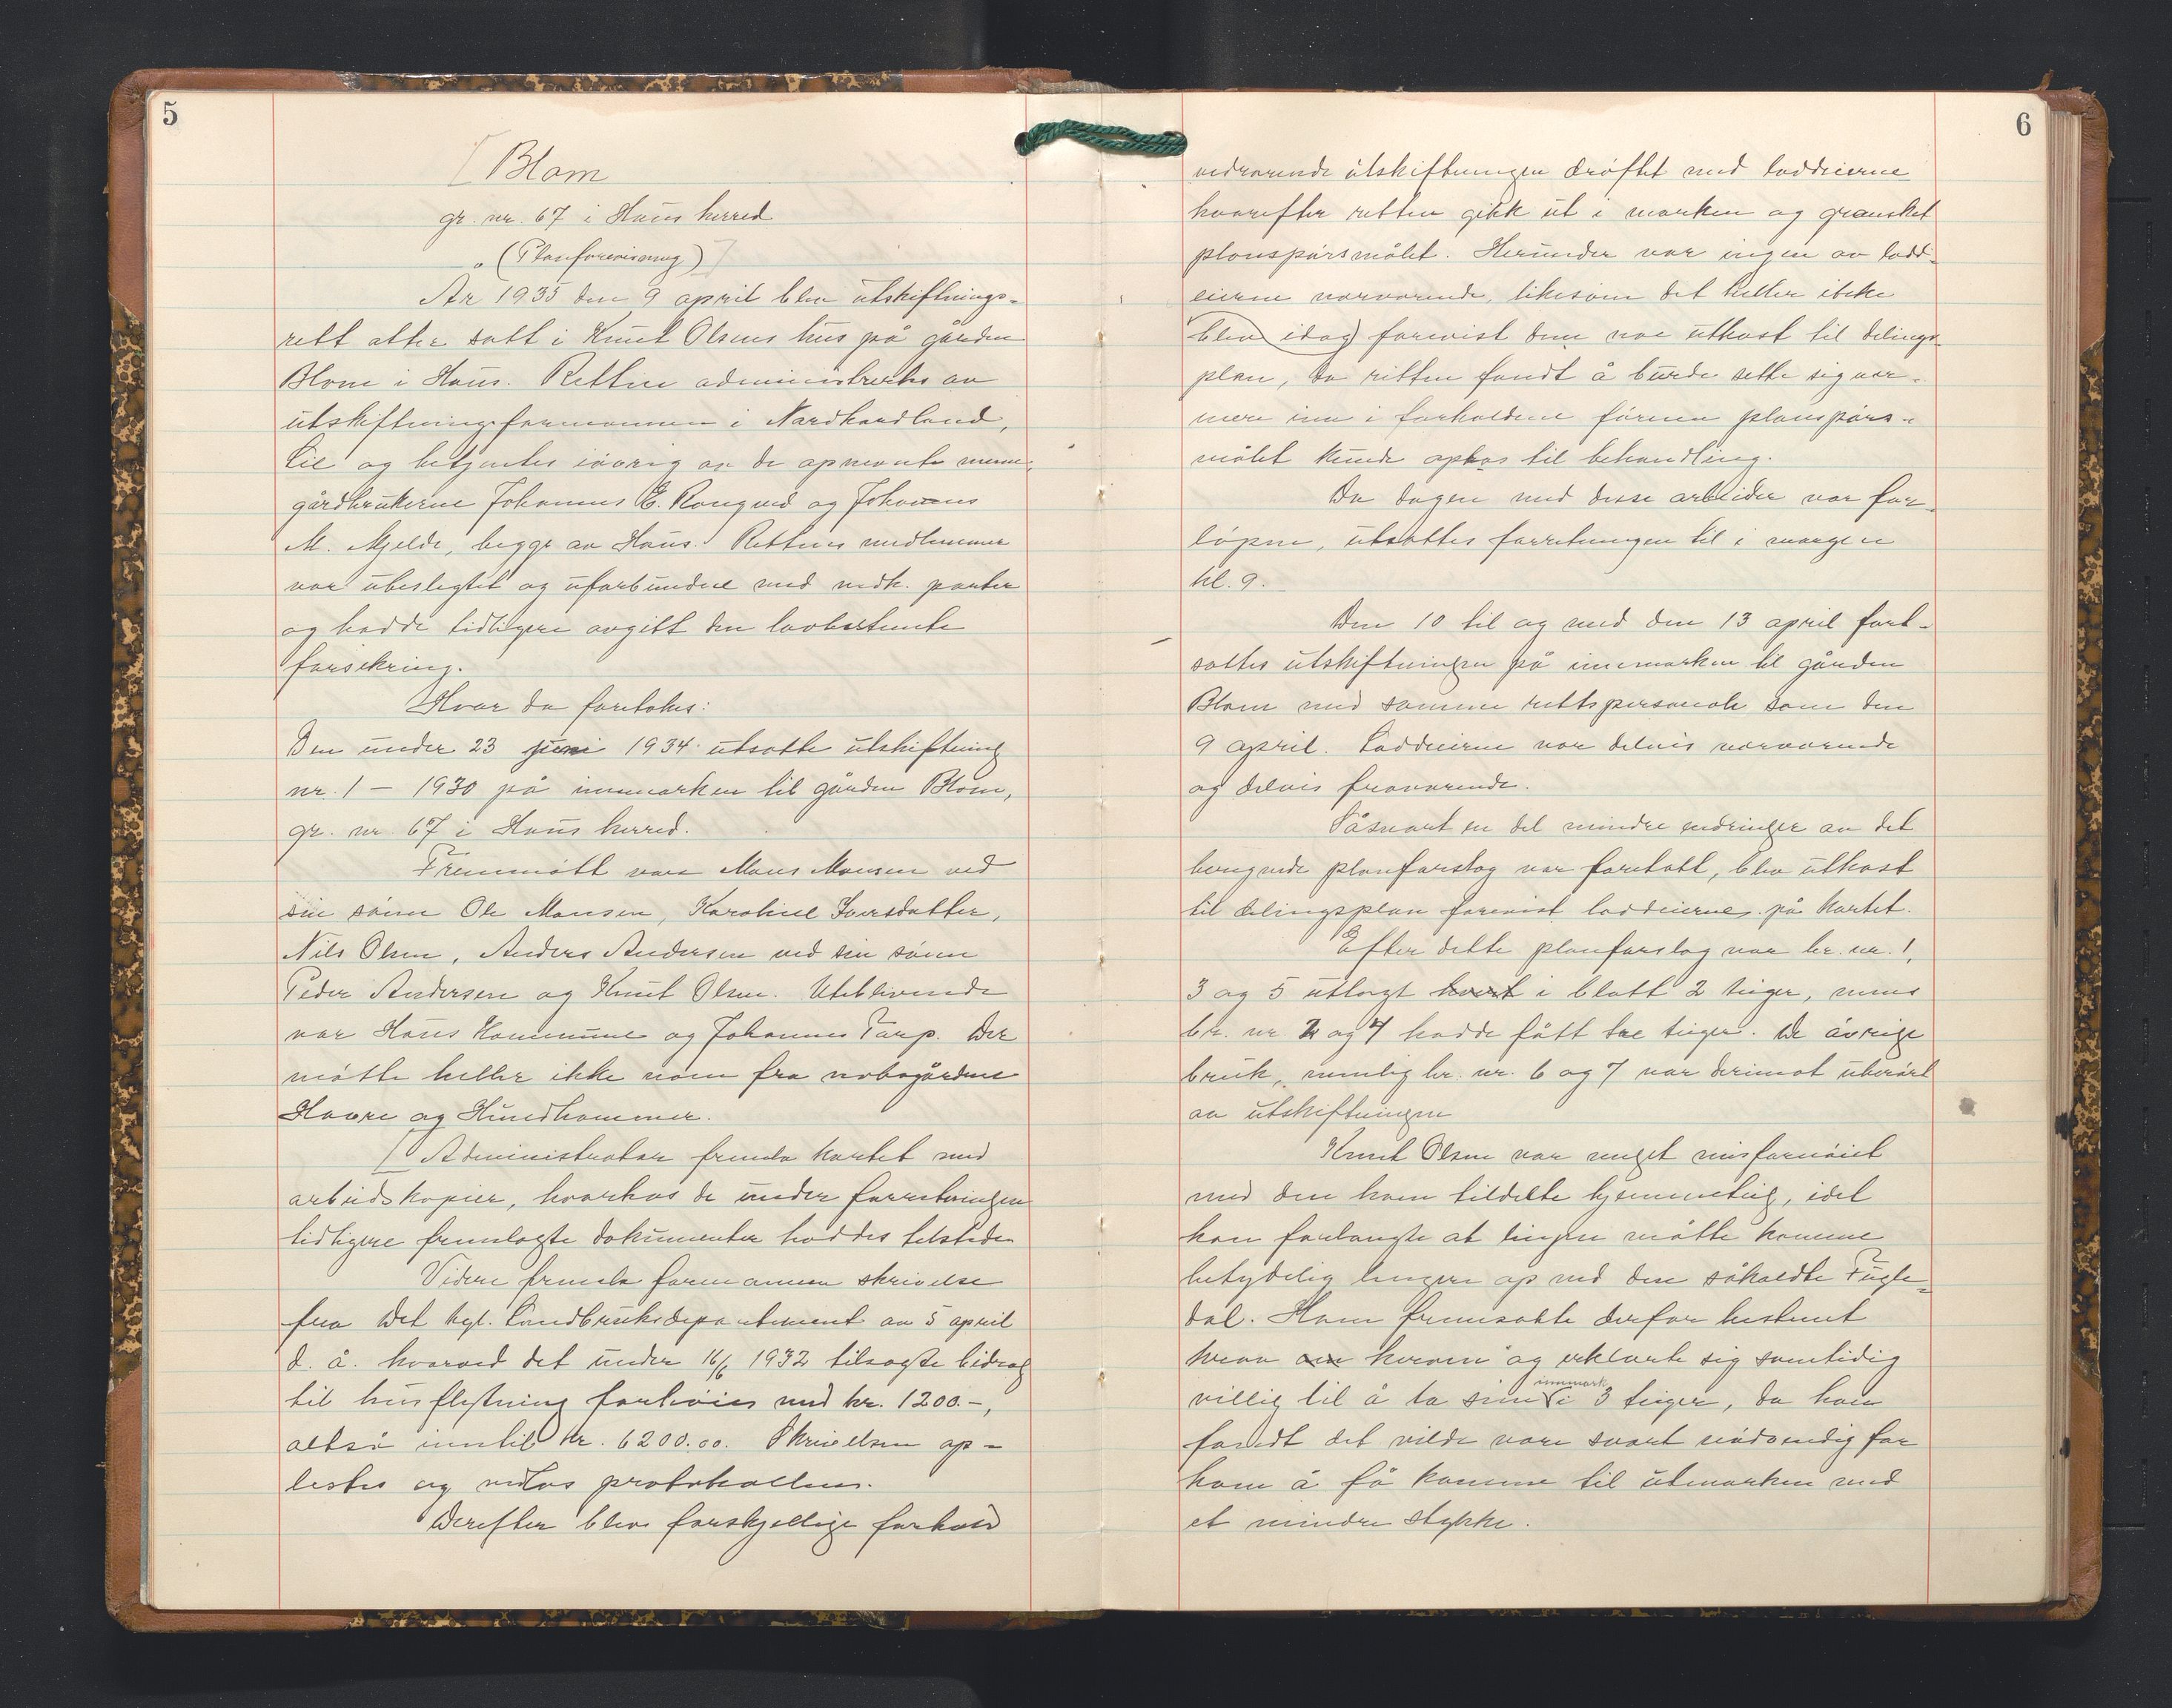 5
[Blom
gr. nr. 67 i Haus herred
(Planforevisning)]
År 1935 den 9 april blev utskiftnings-
rett atter satt i Knut Olsens hus på gården
Blom i Haus. Retten administrertes av
utskiftningsformannen i Nordhordland,
Lie og betjentes iøvrig av de opnevnte menn,
gårdbrukerne Johannes E. Rongved og Johannes
M. Mjelde, begge av Haus. Rettens medlemmer
var ubeslegtet og uforbundne med vedk. parter
og hadde tidligere avgitt den lovbestemte
forsikring.
Hvor da foretokes:
Den under 23 juni 1934 utsatte utskiftning
nr. 1 – 1930 på innmarken til gården Blom,
gr. nr. 67 i Haus herred.
Fremmøtt var Mons Monsen ved
sin sønn Ole Monsen, Karoline Iversdatter,
Nils Olsen, Anders Andersen ved sin sønn
Peder Andersen og Knut Olsen. Uteblivende
var Haus Kommune og Johannes Tarp. Der
møtte heller ikke noen fra nabogårdene
Havre og Hundhammer.
[Administrator fremla kartet med
arbeidskopier, hvorhos de under forretningen
tidligere fremlagte dokumenter haddes tilstede.
Videre fremla formannen skrivelse
fra Det kgl. Landbruksdepartement av 5 april
d. å. hvorved det under 16/6 1932 tilsagte bidrag
til husflytning forhøies med kr. 1200.-,
altså inntil kr. 6200.00. Skrivelsen op-
lestes og vedlas protokollen.
Derefter blev forskjellige forhold
6
vedrørende utskiftningen drøftet med loddeierne
hvorefter retten gikk ut i marken og gransket
planspørsmålet. Herunder var ingen av lodd-
eierne nærværende, likesom det heller ikke
blev idag forevist dem noe utkast til delings-
plan, da retten fandt å burde sette sig nær-
mere inn i forholdene førenn planspørs-
målet kunde optas til behandling.
Da dagen med disse arbeider var for-
løpen, utsattes forretningen til i morgen
kl. 9.
Den 10 til og med den 13 april fort-
sattes utskiftningen på innmarken til gården
Blom med samme rettspersonale som den
9 april. Loddeierne var delvis nærværende
og delvis fraværende.
Såsnart en del mindre endringer av det
hengende planforslag var foretatt, blev utkast
til delingsplan forevist loddeierne på kartet.
Efter dette planforslag var br. nr. 1,
3 og 5 utlagt hvert i blott 2 teiger, mens
br. nr. 2 og 4 hadde fått tre teiger. De øvrige
bruk, nemlig br. nr. 6 og 7 var derimot uberørt
av utskiftningen
Knut Olsen var meget misfornøiet
med den ham tildelte hjemmeteig, idet
han forlangte at teigen måtte komme
betydelig lengere op ved den såkaldte Fugle-
dal. Han fremsatte derfor bestemt
krav om herom og erklærte sig samtidig
villig til å ta sin innmark i 3 teiger, da han
fandt det vilde være svært nødvendig for
ham å få komme til utmarken med
et mindre stykke.